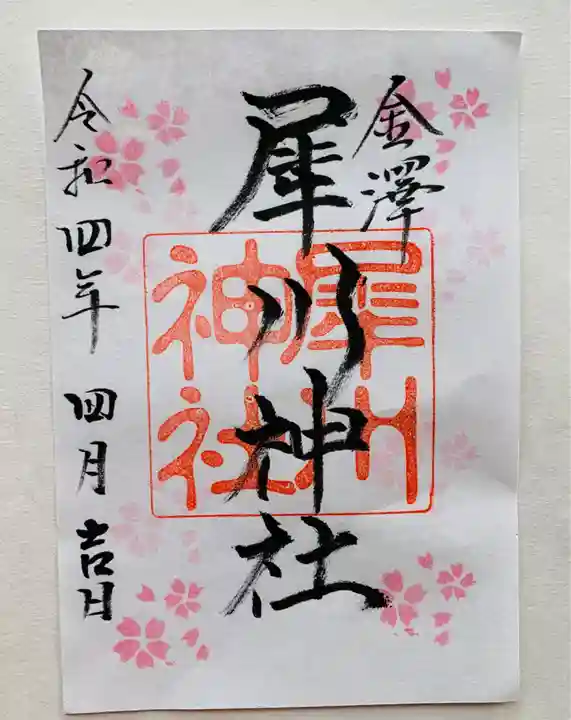 金澤
犀川神社
犀川
神社
令和四年 四月 吉日